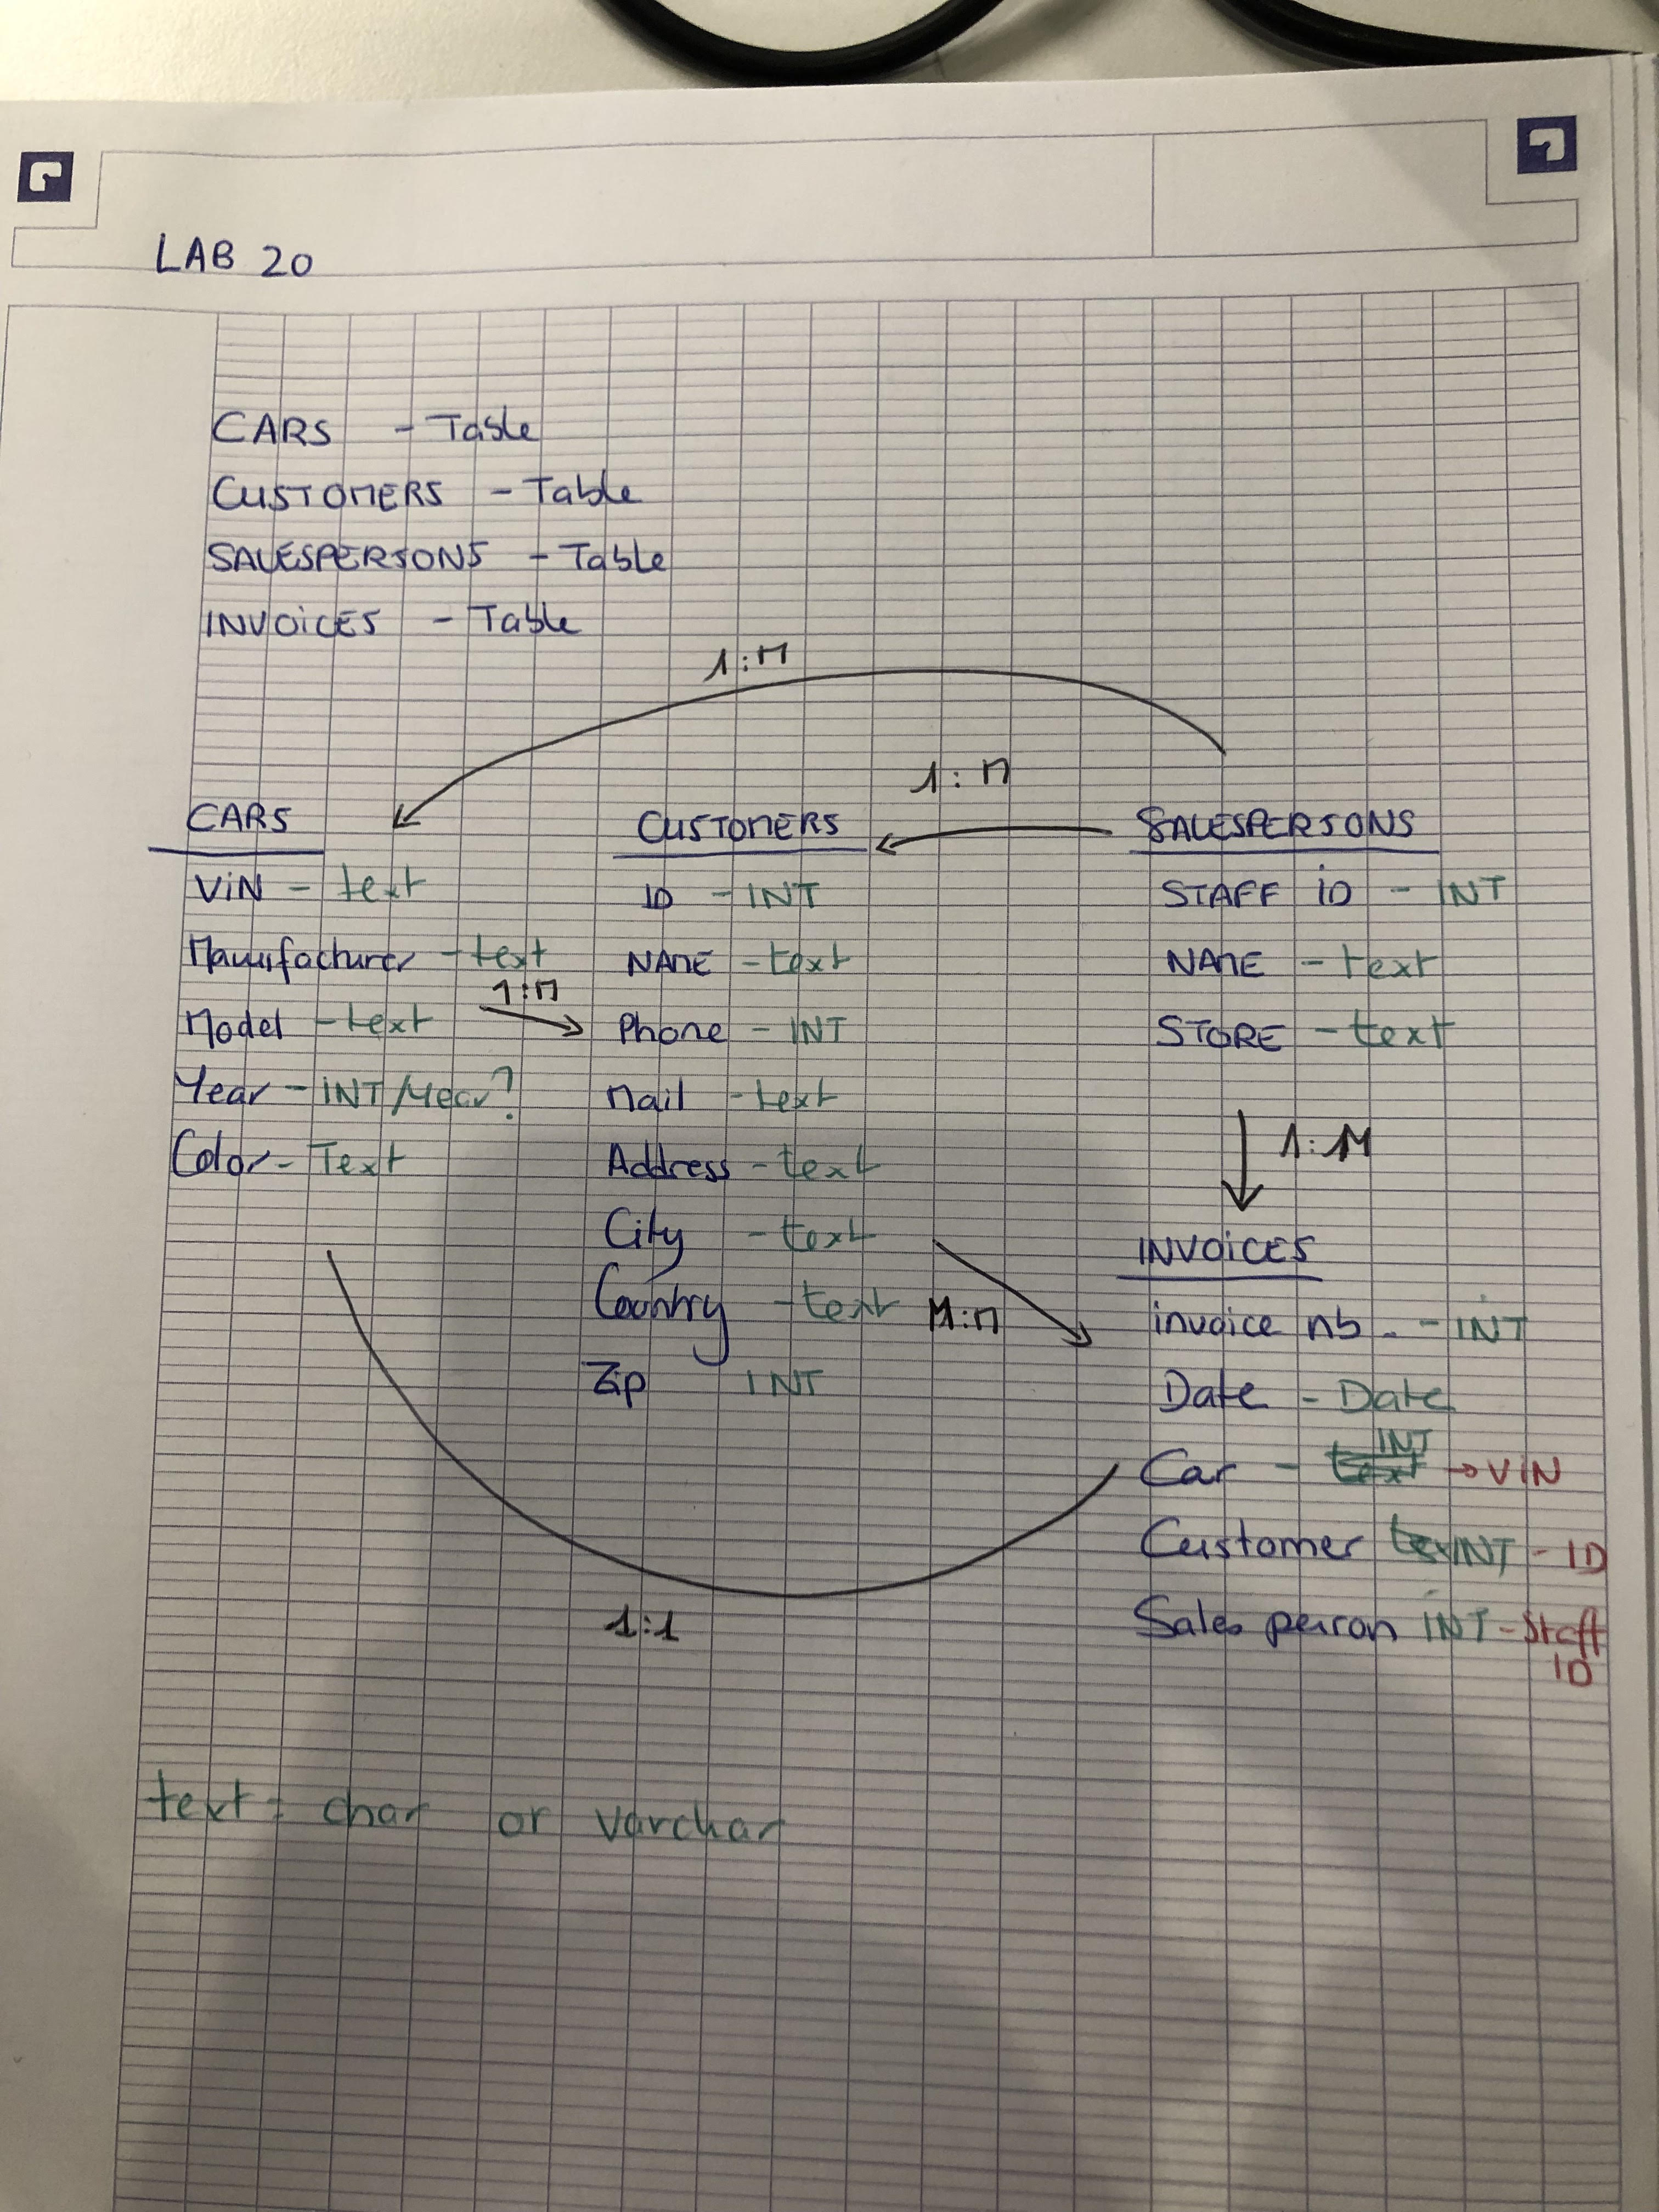 LAB 20
CARS - Table
CUSTOMERS - Table
SALESPERSONS - Table
INVOICES - Table
1:M
1:M
CARS
VIN - text
Manufacturer - text
Model - text
Year - INT/Year?
Color - Text
1:M
CUSTOMERS
ID - INT
NAME - text
Phone - INT
Mail - text
Address - text
City - text
Country - text
Zip INT
M:M
SALESPERSONS
STAFF ID - INT
NAME - text
STORE - text
1:M
INVOICES
invoice nb. - INT
Date - Date
Car - text INT → VIN
Customer text INT - ID
Sales person INT - Staff
ID
1:1
text = char or varchar